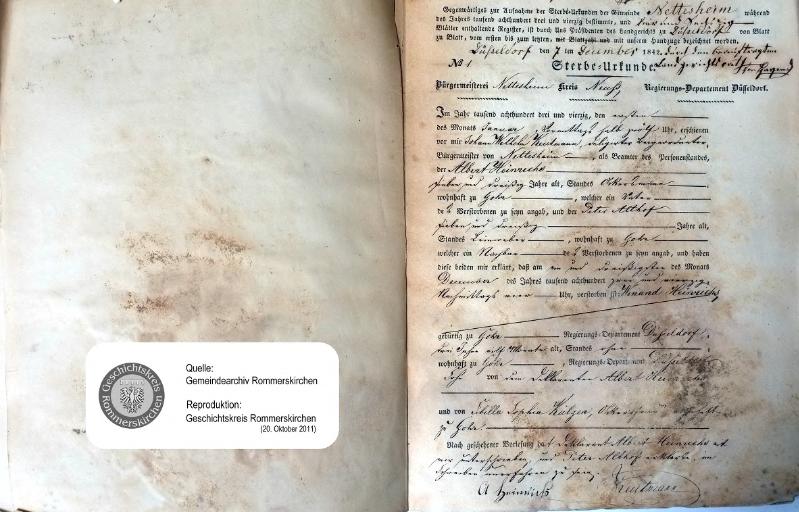 Quelle:
Gemeindearchiv Rommerskirchen
Reproduktion:
Geschichtskreis Rommerskirchen
(20. Oktober 2011)
Geschichtskreis
Rommerskirchen
Gegenwärtiges zur Aufnahme der Sterbe-Urkunden der Gemeinde Nettesheim während
des Jahres tausend achthundert drei und vierzig bestimmte, und
Blätter enthaltende Register, ist durch Uns Präsidenten des Landgerichts zu Düsseldorf von Blatt
zu Blatt, vom ersten bis zum letzten, mit und mit unserm Handzuge bezeichnet worden.
Düsseldorf den 7 ten Dezember 1842.
No 1
Sterbe-Urkunde.
Bürgermeisterei Nettesheim Kreis Neuß, Regierungs-Departement Düsseldorf.
Im Jahr tausend achthundert drei und vierzig, den ersten
des Monats Januar Vormittags halb Uhr, erschienen
vor mir Johann Wilhelm
Bürgermeister von Nettesheim, als Beamter des Personenstandes,
der Albert Heinrichs
sieben und dreißig Jahre alt, Standes
wohnhaft zu Gohr, welcher ein Vater
des Verstorbenen zu seyn angab, und der Peter Althof
sieben und dreißig Jahre alt,
Standes, wohnhaft zu Gohr
welcher ein Nachbar des Verstorbenen zu seyn angab, und haben
diese beiden mir erklärt, daß am ein und dreißigsten des Monats
December des Jahres tausend achthundert zwei und vierzig
Nachmittags vier Uhr, verstorben ist: Heinrichs
gebürtig zu Gohr Regierungs-Departement Düsseldorf,
Jahre Monate alt, Standes ohne
wohnhaft zu Gohr, Regierungs-Departement Düsseldorf
Sohn von dem Deklaranten Albert Heinrichs
und von Sophia
zu Gohr.
Nach geschehener Vorlesung hat Deklarant Albert Heinrichs mit
mir unterschrieben, und Peter Althof erklärte, im
Schreiben unerfahren zu seyn.
A Heinrichs